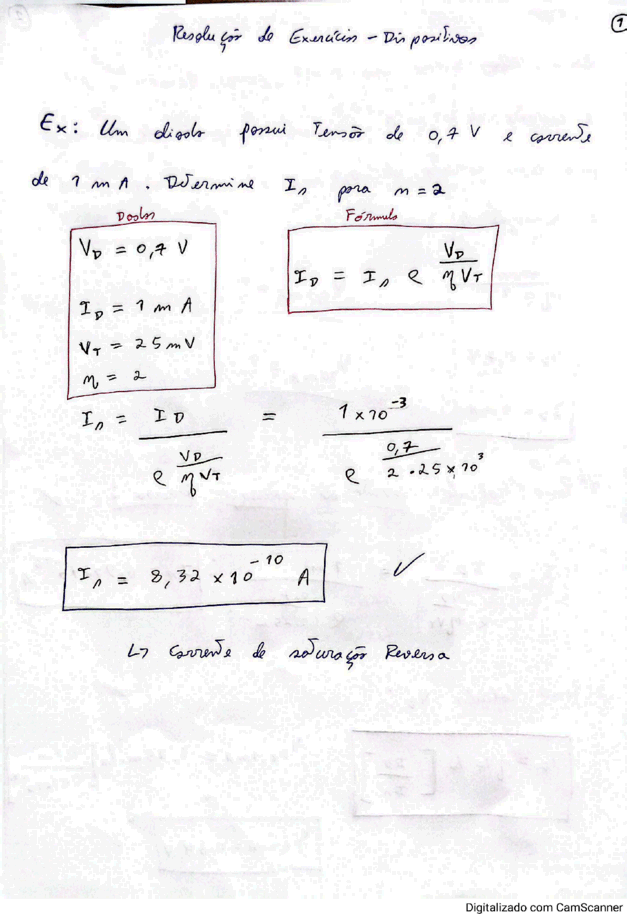 1
Resolução de Exercícios - Dispositivos
Ex: Um diodo possui Tensão de 0,7 V e corrente
de 1 mA. Determine Is para n = 2
Dados
Fórmula
VD = 0,7 V
ID = 1 mA
VT = 25 mV
η = 2
ID = Is e^(VD / η VT)
Is = ID / e^(VD / η VT) = 1 x 10^-3 / e^(0,7 / 2 . 25 x 10^3)
Is = 8,32 x 10^-10 A ✓
↳ Corrente de saturação Reversa
Digitalizado com CamScanner